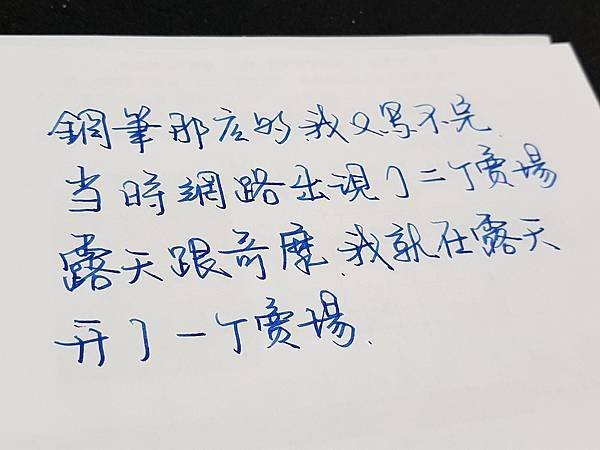 鋼筆那么多我又写不完.
当時網路出現了二个賣場
露天跟奇摩.我就在露天
开了一个賣場.